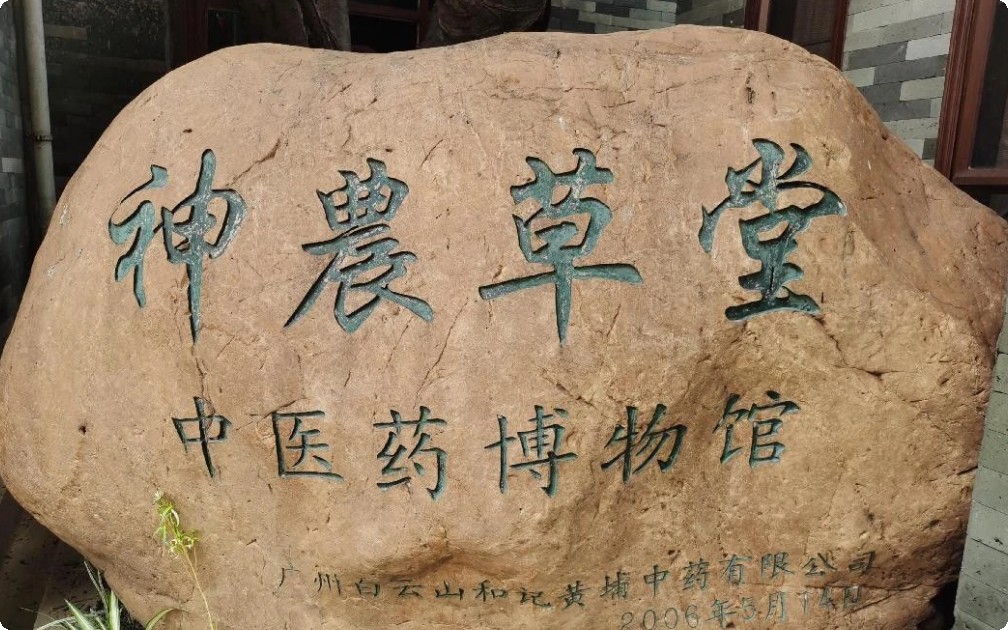 神農草堂
中医药博物馆
广州白云山和记黄埔中药有限公司
2006年5月14日